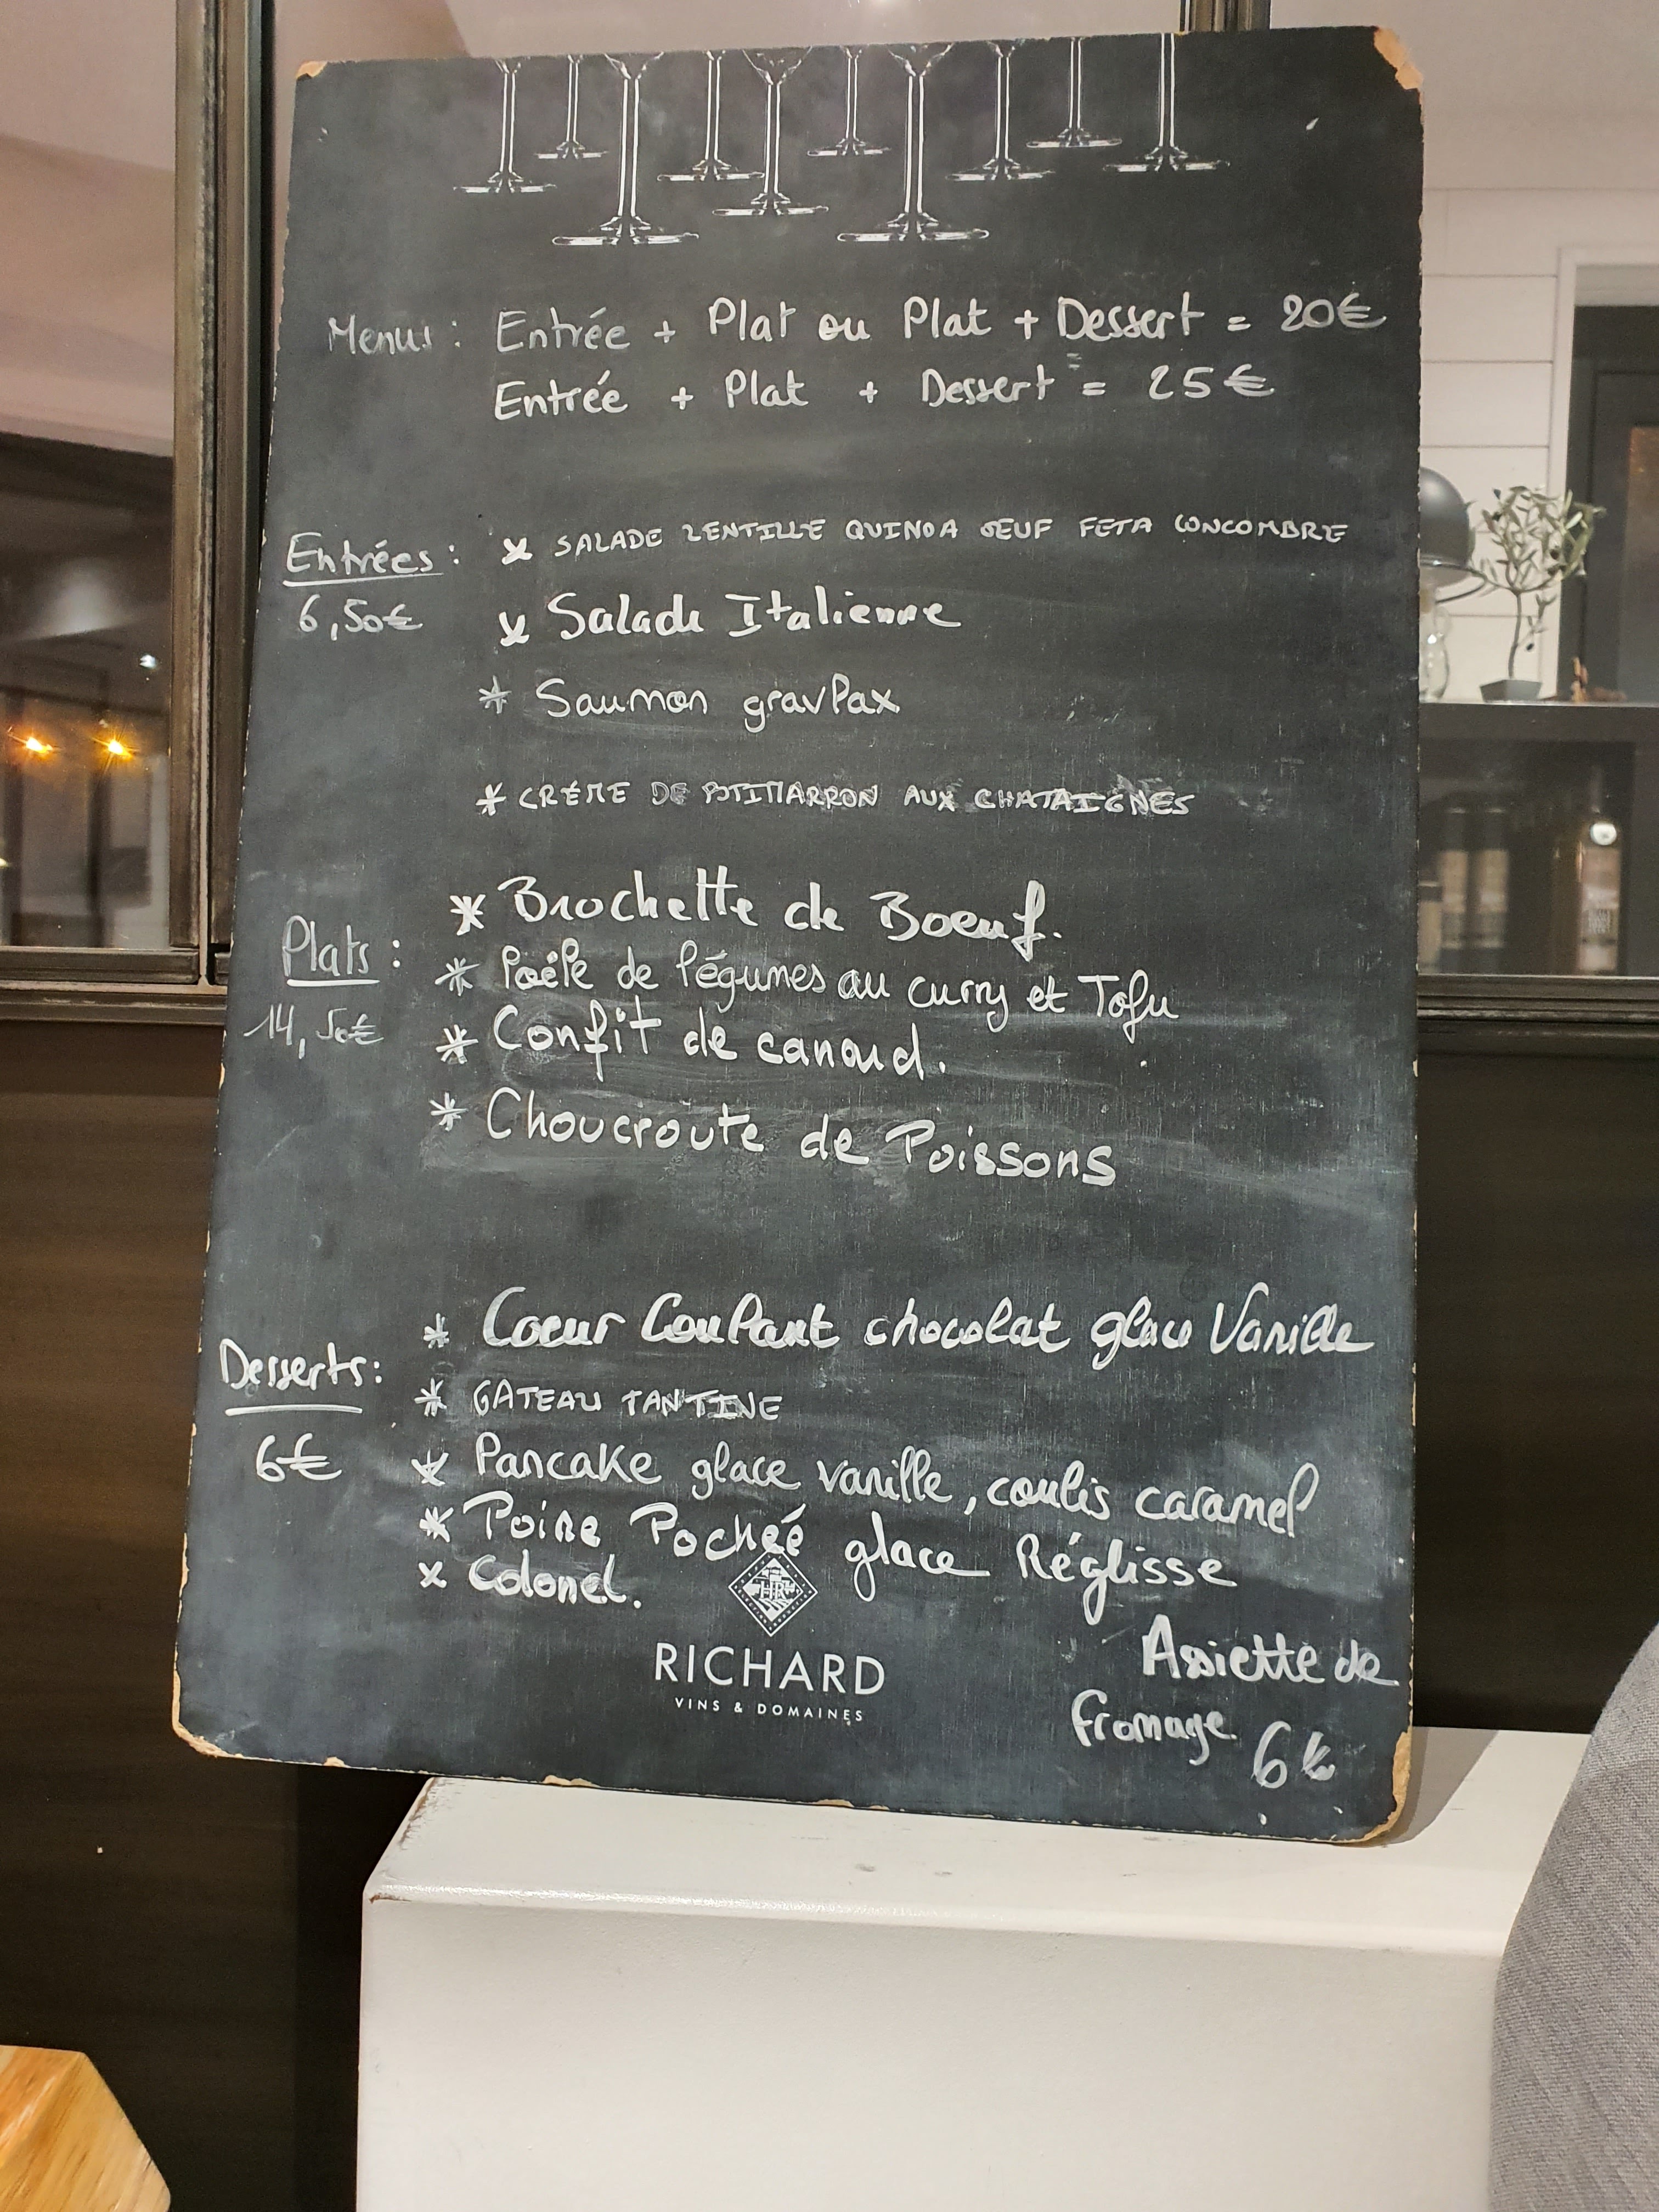 Menus : Entrée + Plat ou Plat + Dessert = 20€
Entrée + Plat + Dessert = 25€
Entrées :
6,50€
* SALADE LENTILLE QUINOA OEUF FETA CONCOMBRE
* Salade Italienne
* Saumon gravlax
* CRÉME DE POTIMARRON AUX CHATAIGNES
Plats :
14,50€
* Brochette de Boeuf.
* Poêle de légumes au curry et Tofu
* Confit de canard.
* Choucroute de Poissons
Desserts :
6€
* Coeur Coulant chocolat glace Vanille
* GATEAU TANTINE
* Pancake glace vanille, coulis caramel
* Poire Pochée glace Réglisse
* Colonel.
Assiette de
fromage 6€
HR
RICHARD
VINS & DOMAINES